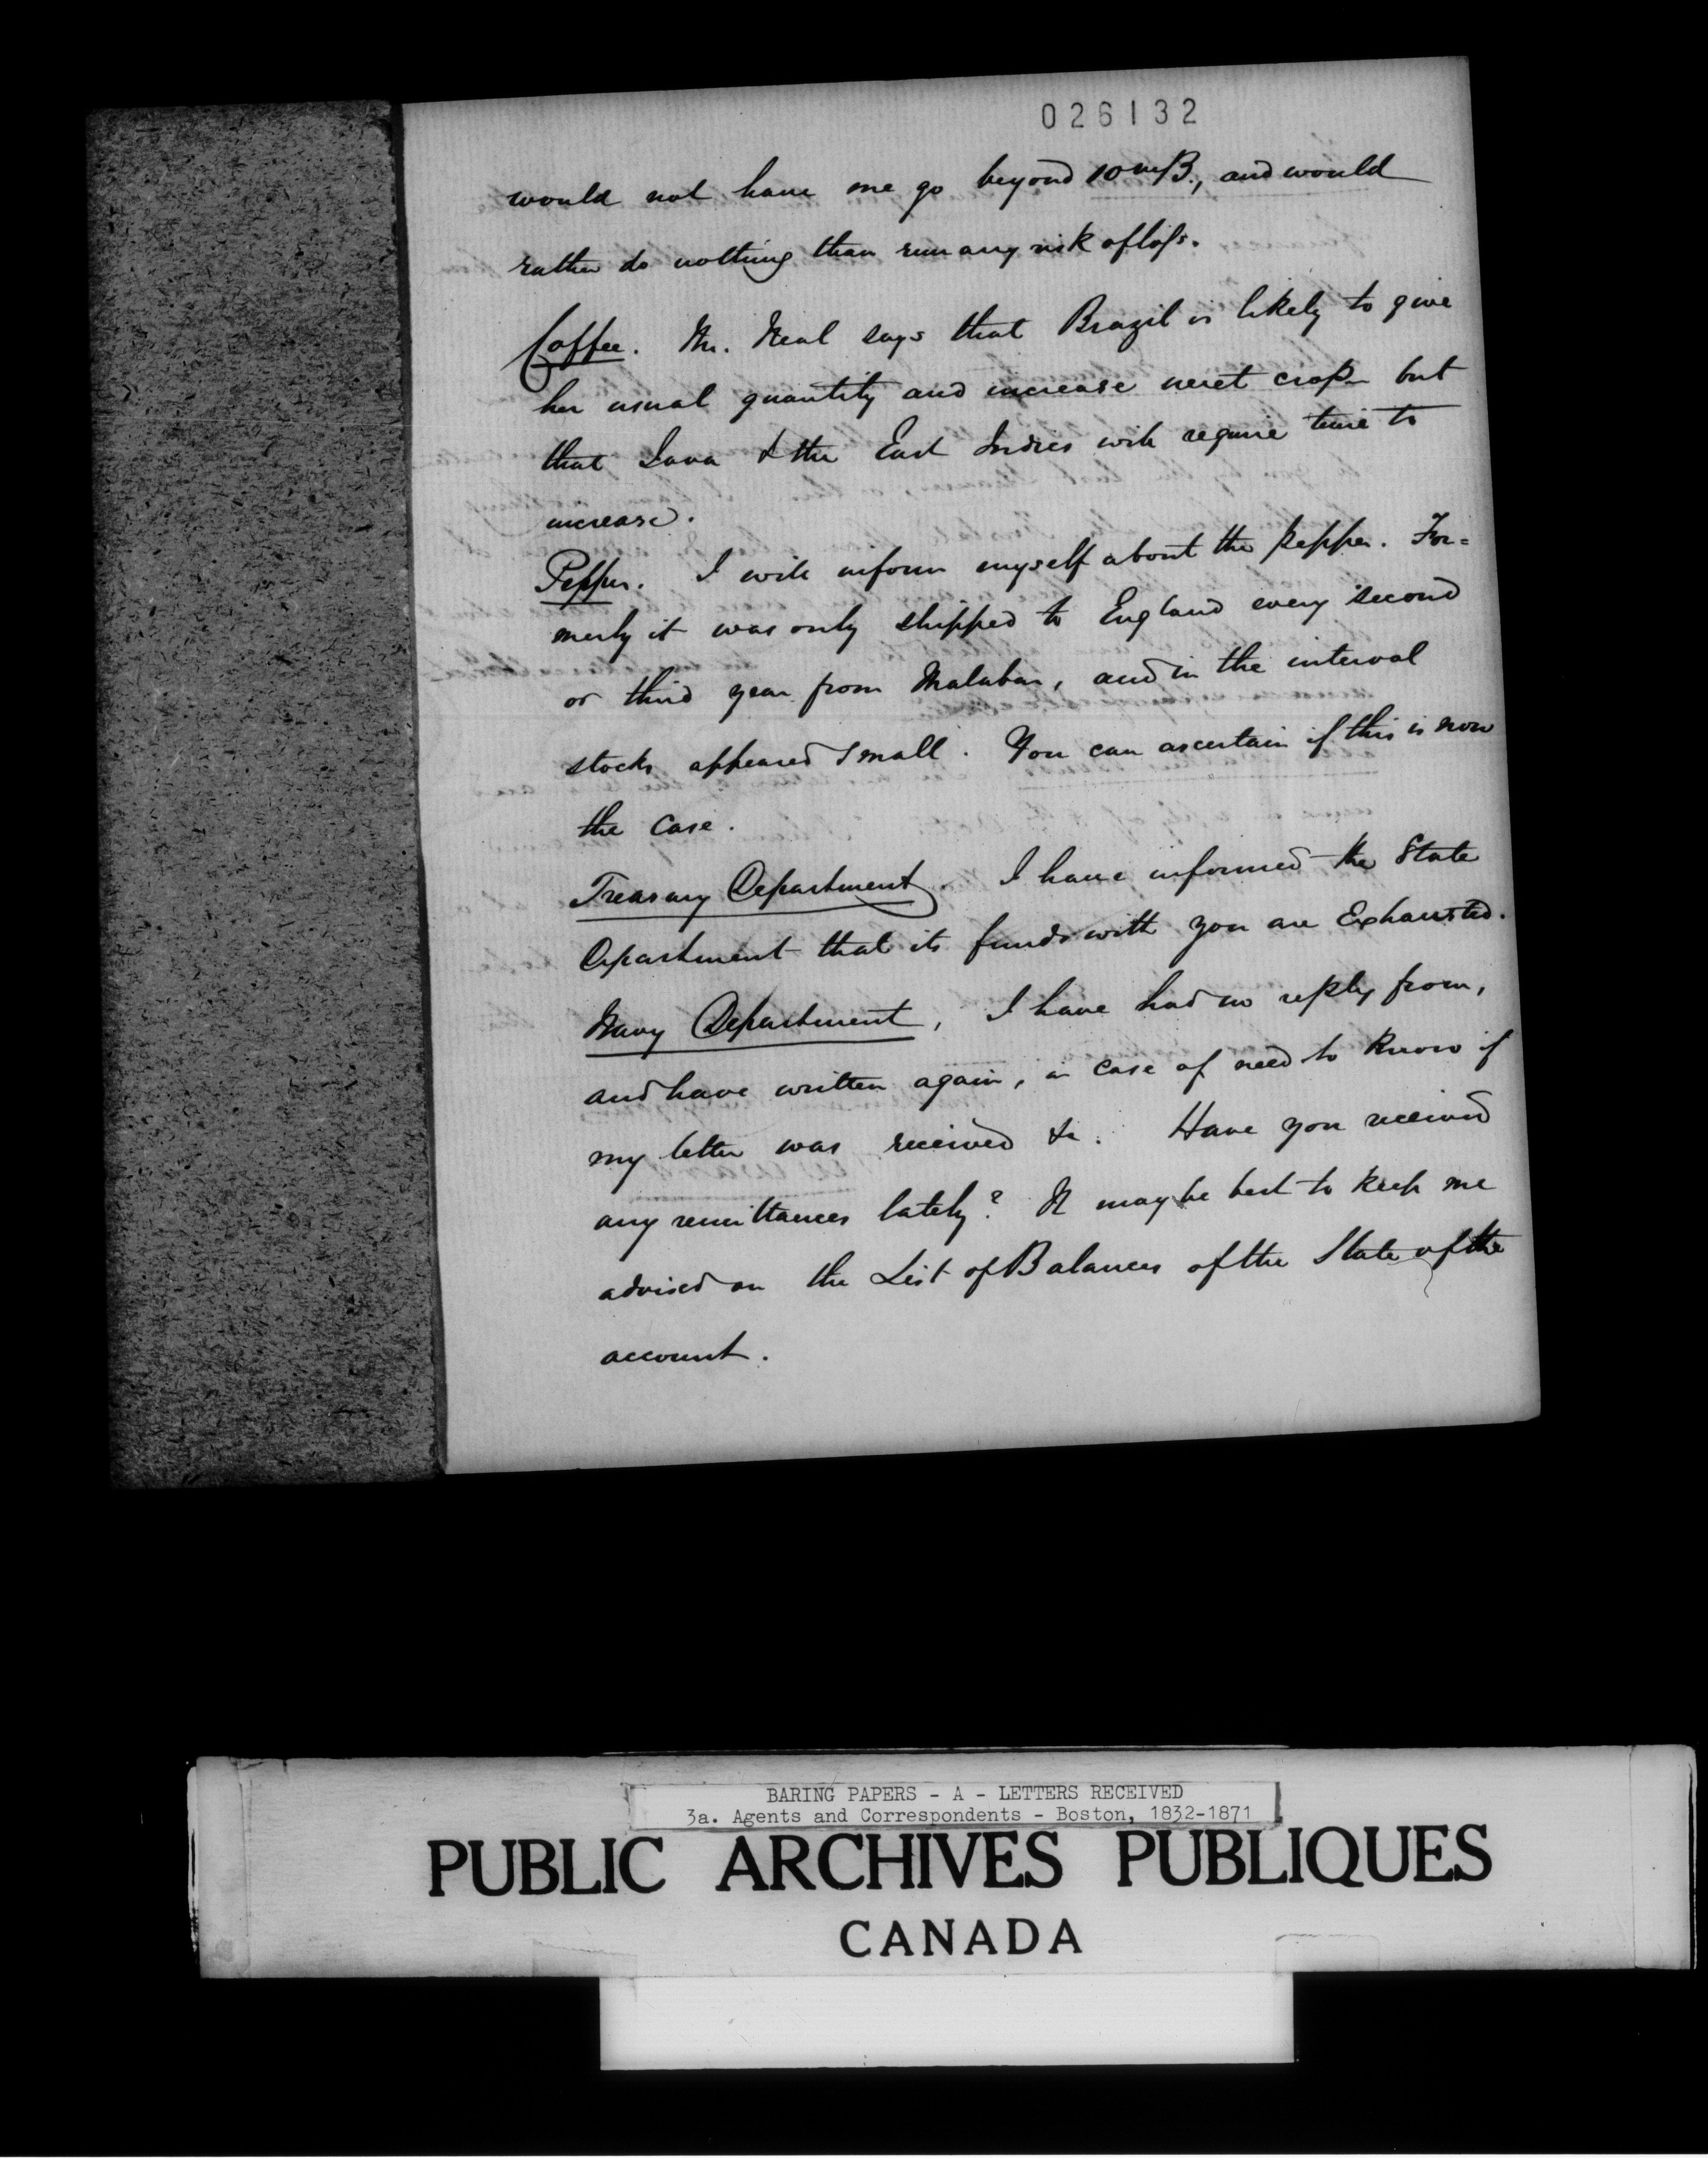 026132
would not have me go beyond 10 m/B., and would
rather do nothing than run any risk of loss.
Coffee. Mr. Neal says that Brazil is likely to give
her usual quantity and increase next crop but
that Java & the East Indies will require time to
increase.
Pepper. I will inform myself about the pepper. For=
merly it was only shipped to England every second
or third year from Malabar, and in the interval
stocks appeared small. You can ascertain if this is now
the case.
Treasury Department. I have informed the State
Department that its funds with you are Exhausted.
Navy Department, I have had no reply from,
and have written again, in case of need to know if
my letter was received &c. Have you received
any remittances lately? It may be best to keep me
advised on the List of Balances of the State of the
account.
BARING PAPERS - A - LETTERS RECEIVED
3a. Agents and Correspondents - Boston, 1832-1871
PUBLIC ARCHIVES PUBLIQUES
CANADA